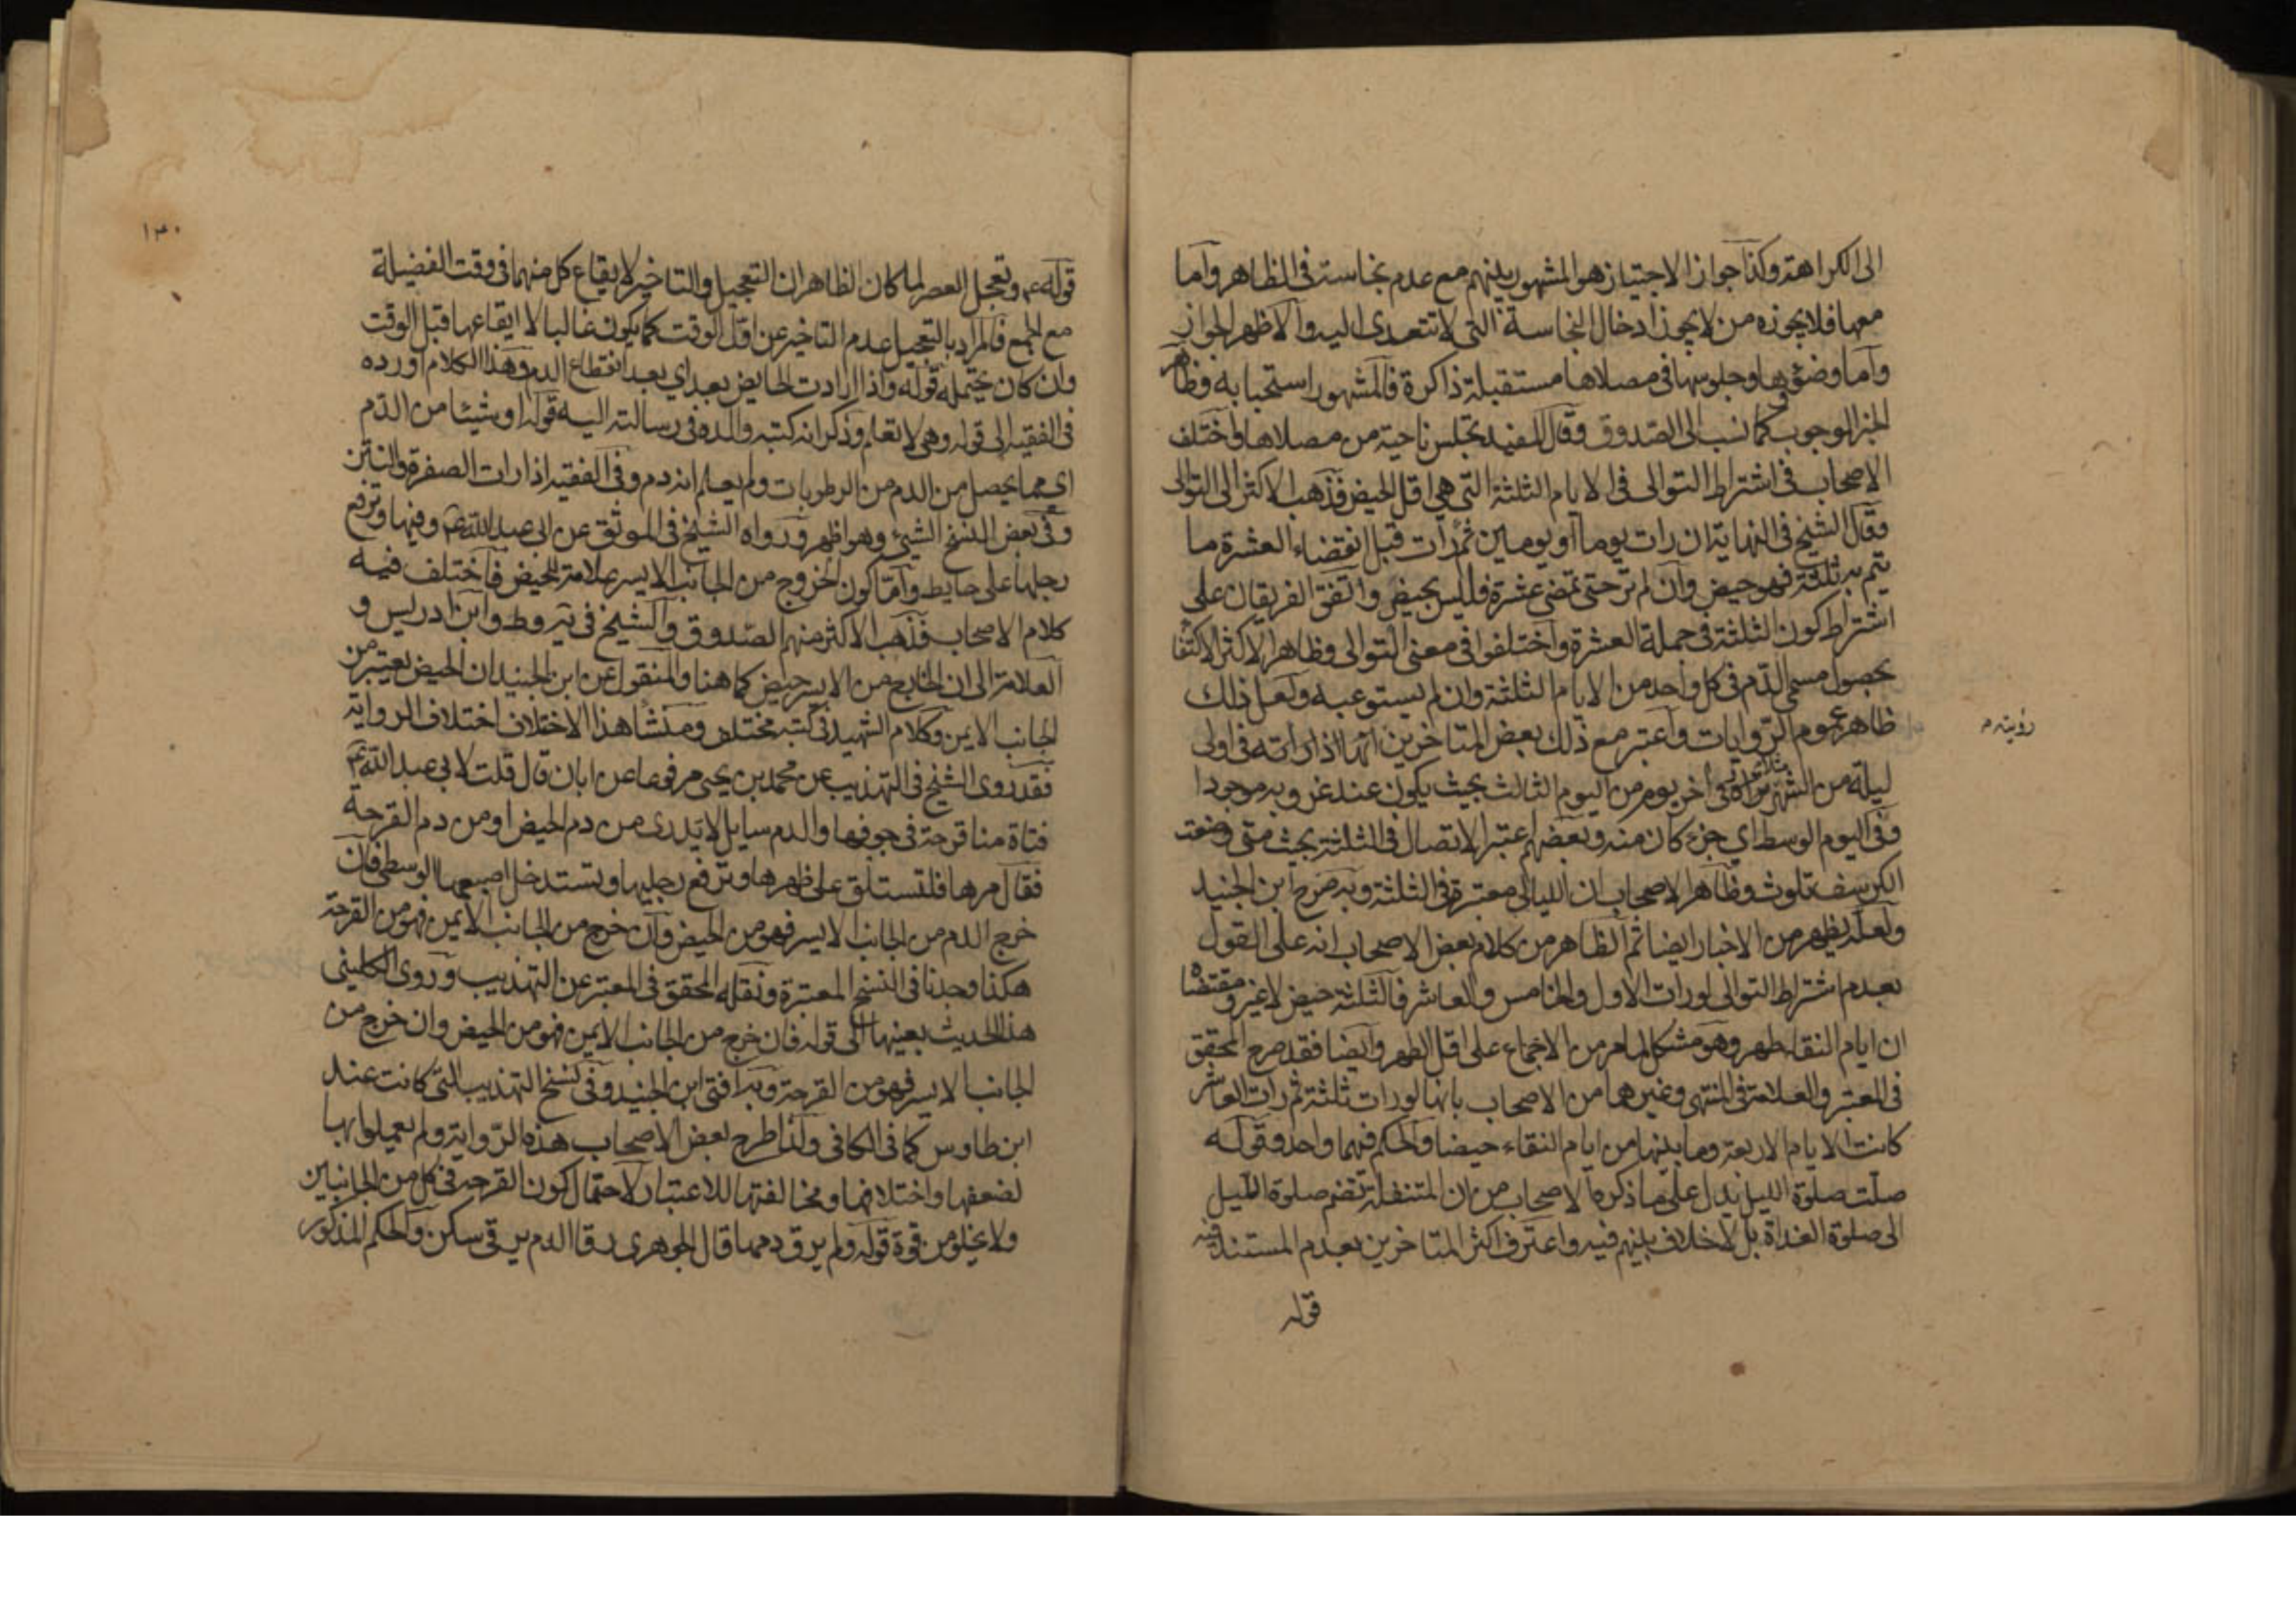 الى الكراهة وكذا جواز الاجتياز هو المشهور بينهم مع عدم نجاسته في الظاهر واما
معها فلا يجوزه من لا يجوز ادخال النجاسة التي لا تتعدى اليه والاظهر الجواز
واما وضؤها وجلوسها في مصلاها مستقبلة ذاكرة فالمشهور استحبابه وظاهر
الخبر الوجوب كما نسب الى الصدوق وقال المفيد تجلس ناحية من مصلاها واختلف
الاصحاب في اشتراط التوالى في الايام الثلثة التي هي اقل الحيض فذهب الاكثر الى التوالى
وقال الشيخ في النهاية ان رات يوما او يومين ثم رات قبل انقضاء العشرة ما
يتم به ثلثة فهو حيض وان لم تر حتى تمضى عشرة فليس بحيض واتفق الفريقان على
اشتراط كون الثلثة في جملة العشرة واختلفوا في معنى التوالى وظاهر الاكثر الاكتفا
بحصول مسمى الدم في كل واحد من الايام الثلثة وان لم يستوعبه ولعل ذلك
ظاهر عموم الروايات واعتبر مع ذلك بعض المتاخرين انها اذا راته في اولى
رؤيته م
ليلة من الشهر مثلا تراه في اخر يوم من اليوم الثالث بحيث يكون عند غروبه موجودا
وفي اليوم الوسط اي جزء كان منه وبعضهم اعتبر الاتصال في الثلثة بحيث متى وضعت
الكرسف تلوث وظاهر الاصحاب ان الليالى معتبرة في الثلثة وبه صرح ابن الجنيد
ولعله يظهر من الاخبار ايضا ثم الظاهر من كلام بعض الاصحاب انه على القول
بعدم اشتراط التوالى لو رات الاول والخامس والعاشر فالثلثة حيض لا غير ومقتضاه
ان ايام النقاء طهر وهو مشكل لما مر من الاجماع على اقل الطهر وايضا فقد صرح المحقق
في المعتبر والعلامة في المنتهى وغيرهما من الاصحاب بانها لو رات ثلثة ثم رات العاشر
كانت الايام الاربعة وما بينها من ايام النقاء حيضا والحكم فيهما واحد وقوله
صلت صلوة الليل يدل على ما ذكره الاصحاب من ان المتنفلة تضم صلوة الليل
الى صلوة الغداة بل لا خلاف بينهم فيه واعترف اكثر المتاخرين بعدم المستند فيه
قوله
١٣٠
قوله ع وتعجل العصر لما كان الظاهر ان التعجيل والتاخير لايقاع كل منهما في وقت الفضيلة
مع الجمع فالمراد بالتعجيل عدم التاخير عن اول الوقت كما يكون غالبا لا ايقاعها قبل الوقت
وان كان يحتمله قوله واذا ارادت الحايض بعد اي بعد انقطاع الدم وهذا الكلام اورده
في الفقيه الى قوله وهي لا تعلم وذكر انه كتبه والده في رسالته اليه قوله او شيئا من الدم
اي مما يحصل من الدم من الرطوبات ولم يعلم انه دم وفي الفقيه اذا رات الصفرة والنتن
وفي بعض النسخ الشيئ وهو اظهر ورواه الشيخ في الموثق عن ابي عبد الله ع وفيها وترفع
رجلها على حايط واما كون الخروج من الجانب الايسر علامة للحيض فاختلف فيه
كلام الاصحاب فذهب الاكثر منهم الصدوق والشيخ في يه وط وابن ادريس و
العلامة الى ان الخارج من الايسر حيض كما هنا والمنقول عن ابن الجنيد ان الحيض يعتبر من
الجانب الايمن وكلام الشهيد في كتبه مختلف ومنشأ هذا الاختلاف اختلاف الرواية
فقد روى الشيخ في التهذيب عن محمد بن يحيى مرفوعا عن ابان قال قلت لابي عبد الله ع
فتاة منا قرحة في جوفها والدم سايل لا تدرى من دم الحيض او من دم القرحة
فقال مرها فلتستلق على ظهرها وترفع رجليها وتستدخل اصبعها الوسطى فان
خرج الدم من الجانب الايسر فهو من الحيض وان خرج من الجانب الايمن فهو من القرحة
هكذا وجدنا في النسخ المعتبرة ونقله المحقق في المعتبر عن التهذيب وروى الكليني
هذا الحديث بعينها الى قوله فان خرج من الجانب الايمن فهو من الحيض وان خرج من
الجانب الايسر فهو من القرحة وبه افتى ابن الجنيد وفي نسخ التهذيب التي كانت عند
ابن طاوس كما في الكافي ولذا طرح بعض الاصحاب هذه الرواية ولم يعملوا بها
لضعفها واختلافها ومخالفتها للاعتبار لاحتمال كون القرحة في كل من الجانبين
ولا يخلو من قوة قوله ولم يرق دمها قال الجوهرى رقا الدم يرقى سكن والحكم المذكور